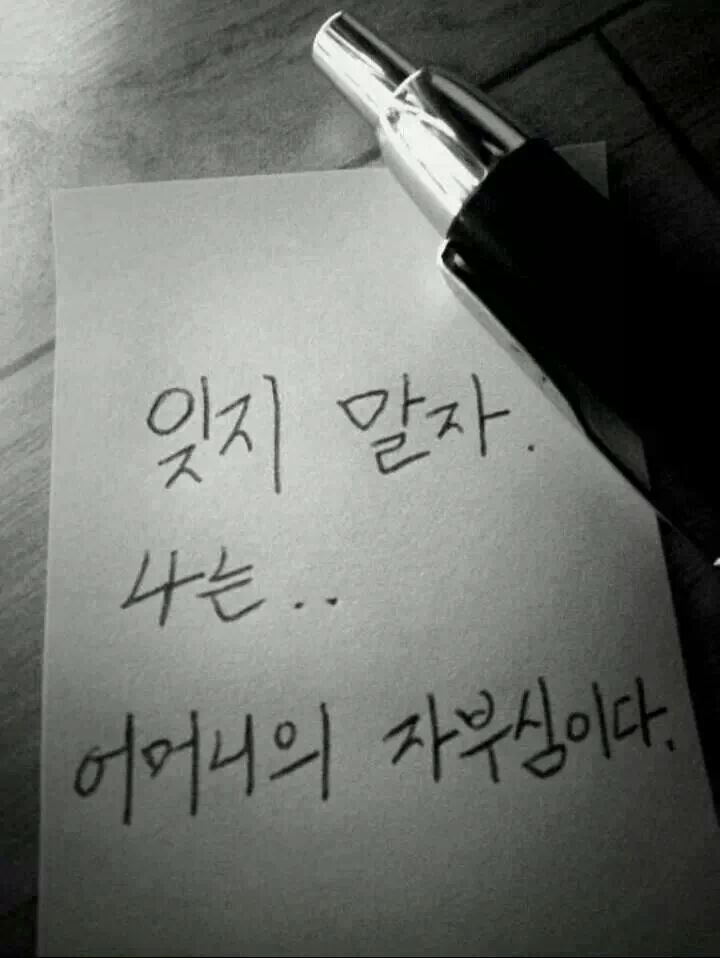 잊지 말자.
나는..
어머니의 자부심이다.